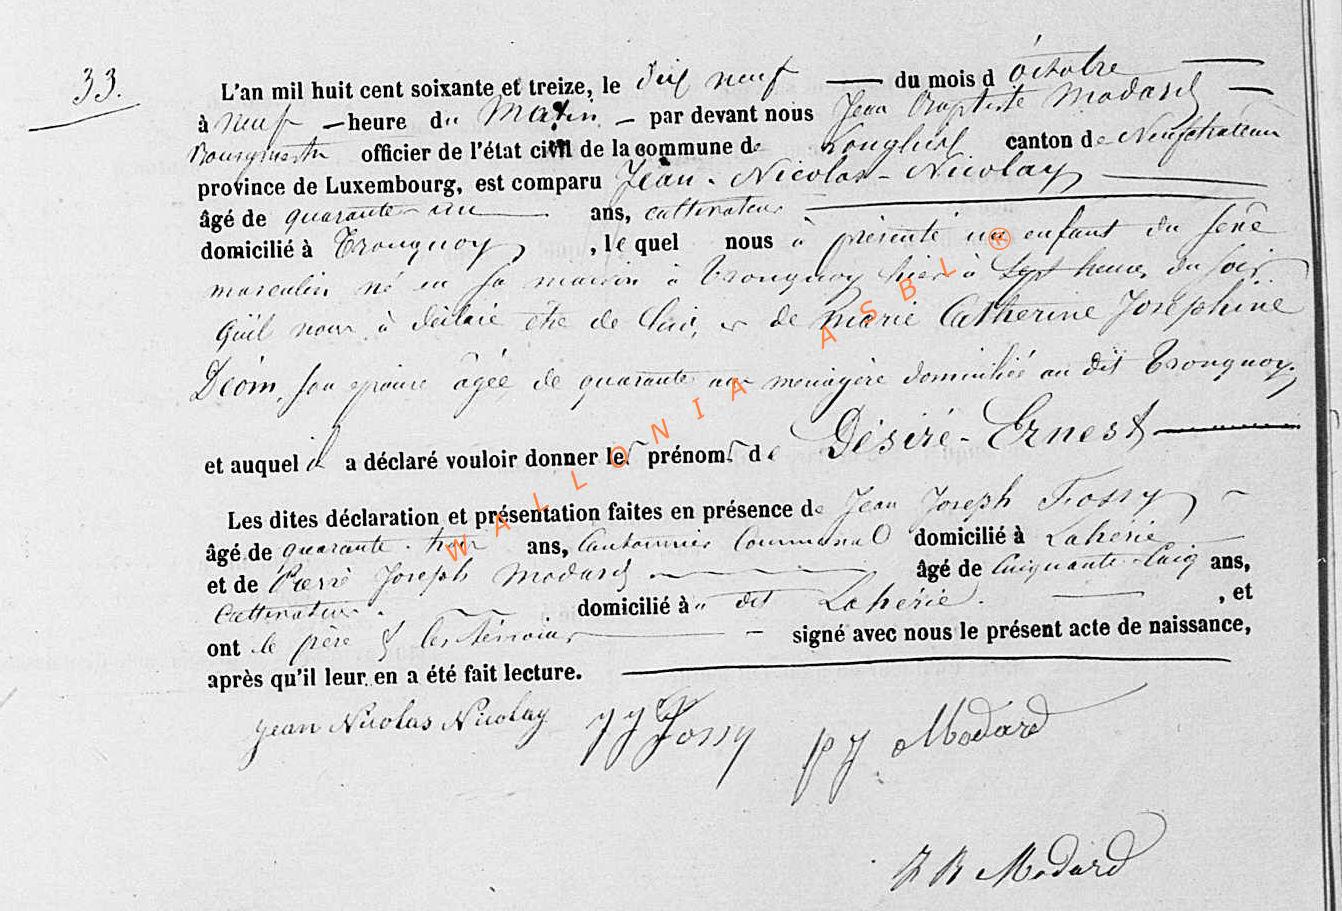 33.
L'an mil huit cent soixante et treize, le dix neuf du mois d'octobre
à neuf heure du Matin par devant nous Jean Baptiste Modard
Bourgmestre officier de l'état civil de la commune de Longlier canton de Neufchateau
province de Luxembourg, est comparu Jean-Nicolas-Nicolay
âgé de quarante-un ans, cultivateur
domicilié à Tronquoy, lequel nous à présenté un enfant du sexe
masculin né en sa maison à Tronquoy hier à sept heures du soir
qu'il nous à déclaré être de lui, et de Marie Catherine Joséphine
Déom, son épouse âgée de quarante ans ménagère domiciliée au dit Tronquoy.
et auquel il a déclaré vouloir donner les prénoms de Désiré-Ernest
Les dites déclaration et présentation faites en présence de Jean Joseph Fossy
âgé de quarante-trois ans, Cantonnier Communal domicilié à Lahérie
et de Pierre Joseph Modard âgé de Cinquante-Cinq ans,
Cultivateur. domicilié à dit Lahérie. , et
ont le père & les témoins signé avec nous le présent acte de naissance,
après qu'il leur en a été fait lecture.
Jean Nicolas Nicolay JJ Fossy PJ Modard
J B Modard
WALLONIA ASBL ®